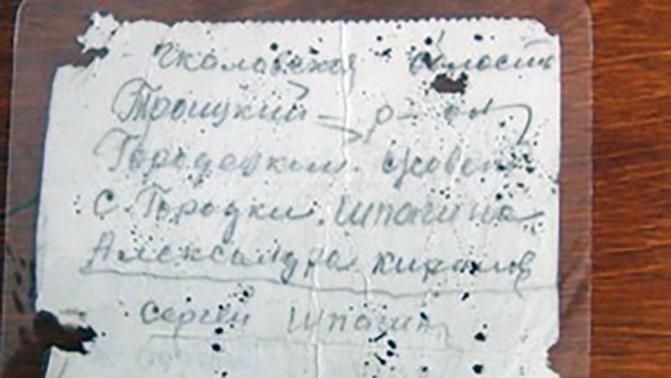 Чкаловская область
Троицкий р-он
Городецкий
с. Городки Шпагина
Александра
Сергей Шпагин